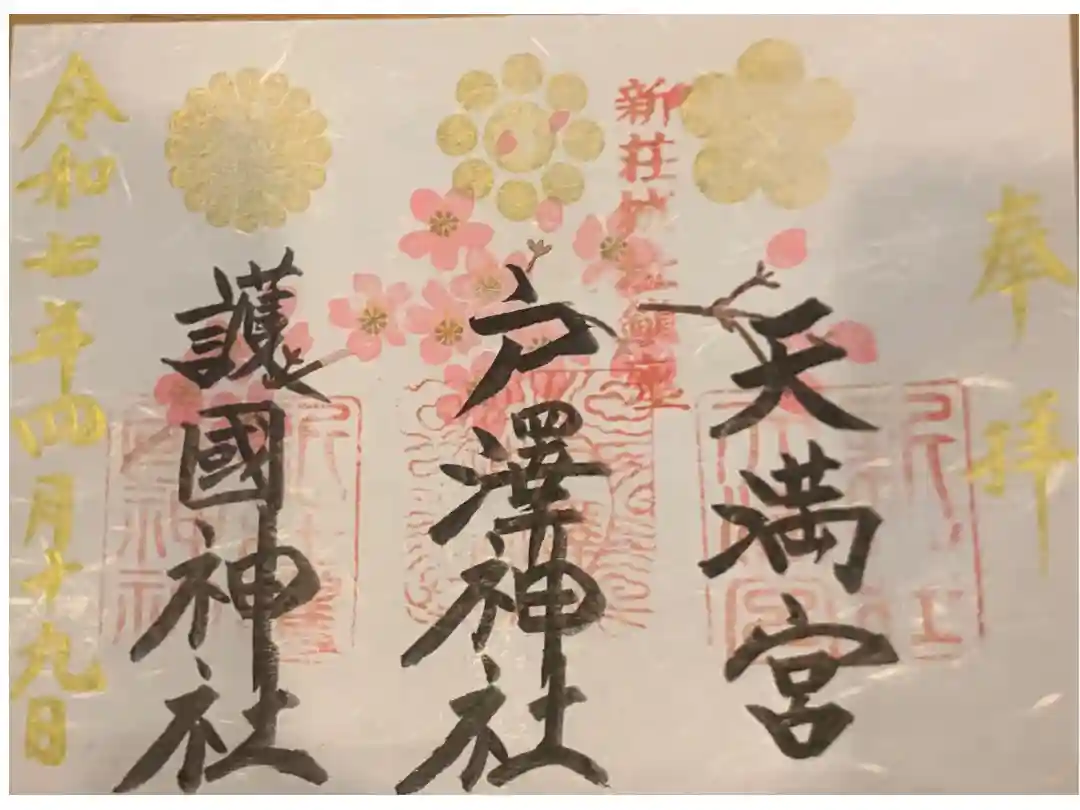 奉拝
新荘城址鎮座
天満宮
戸澤神社
護國神社
令和七年四月十九日